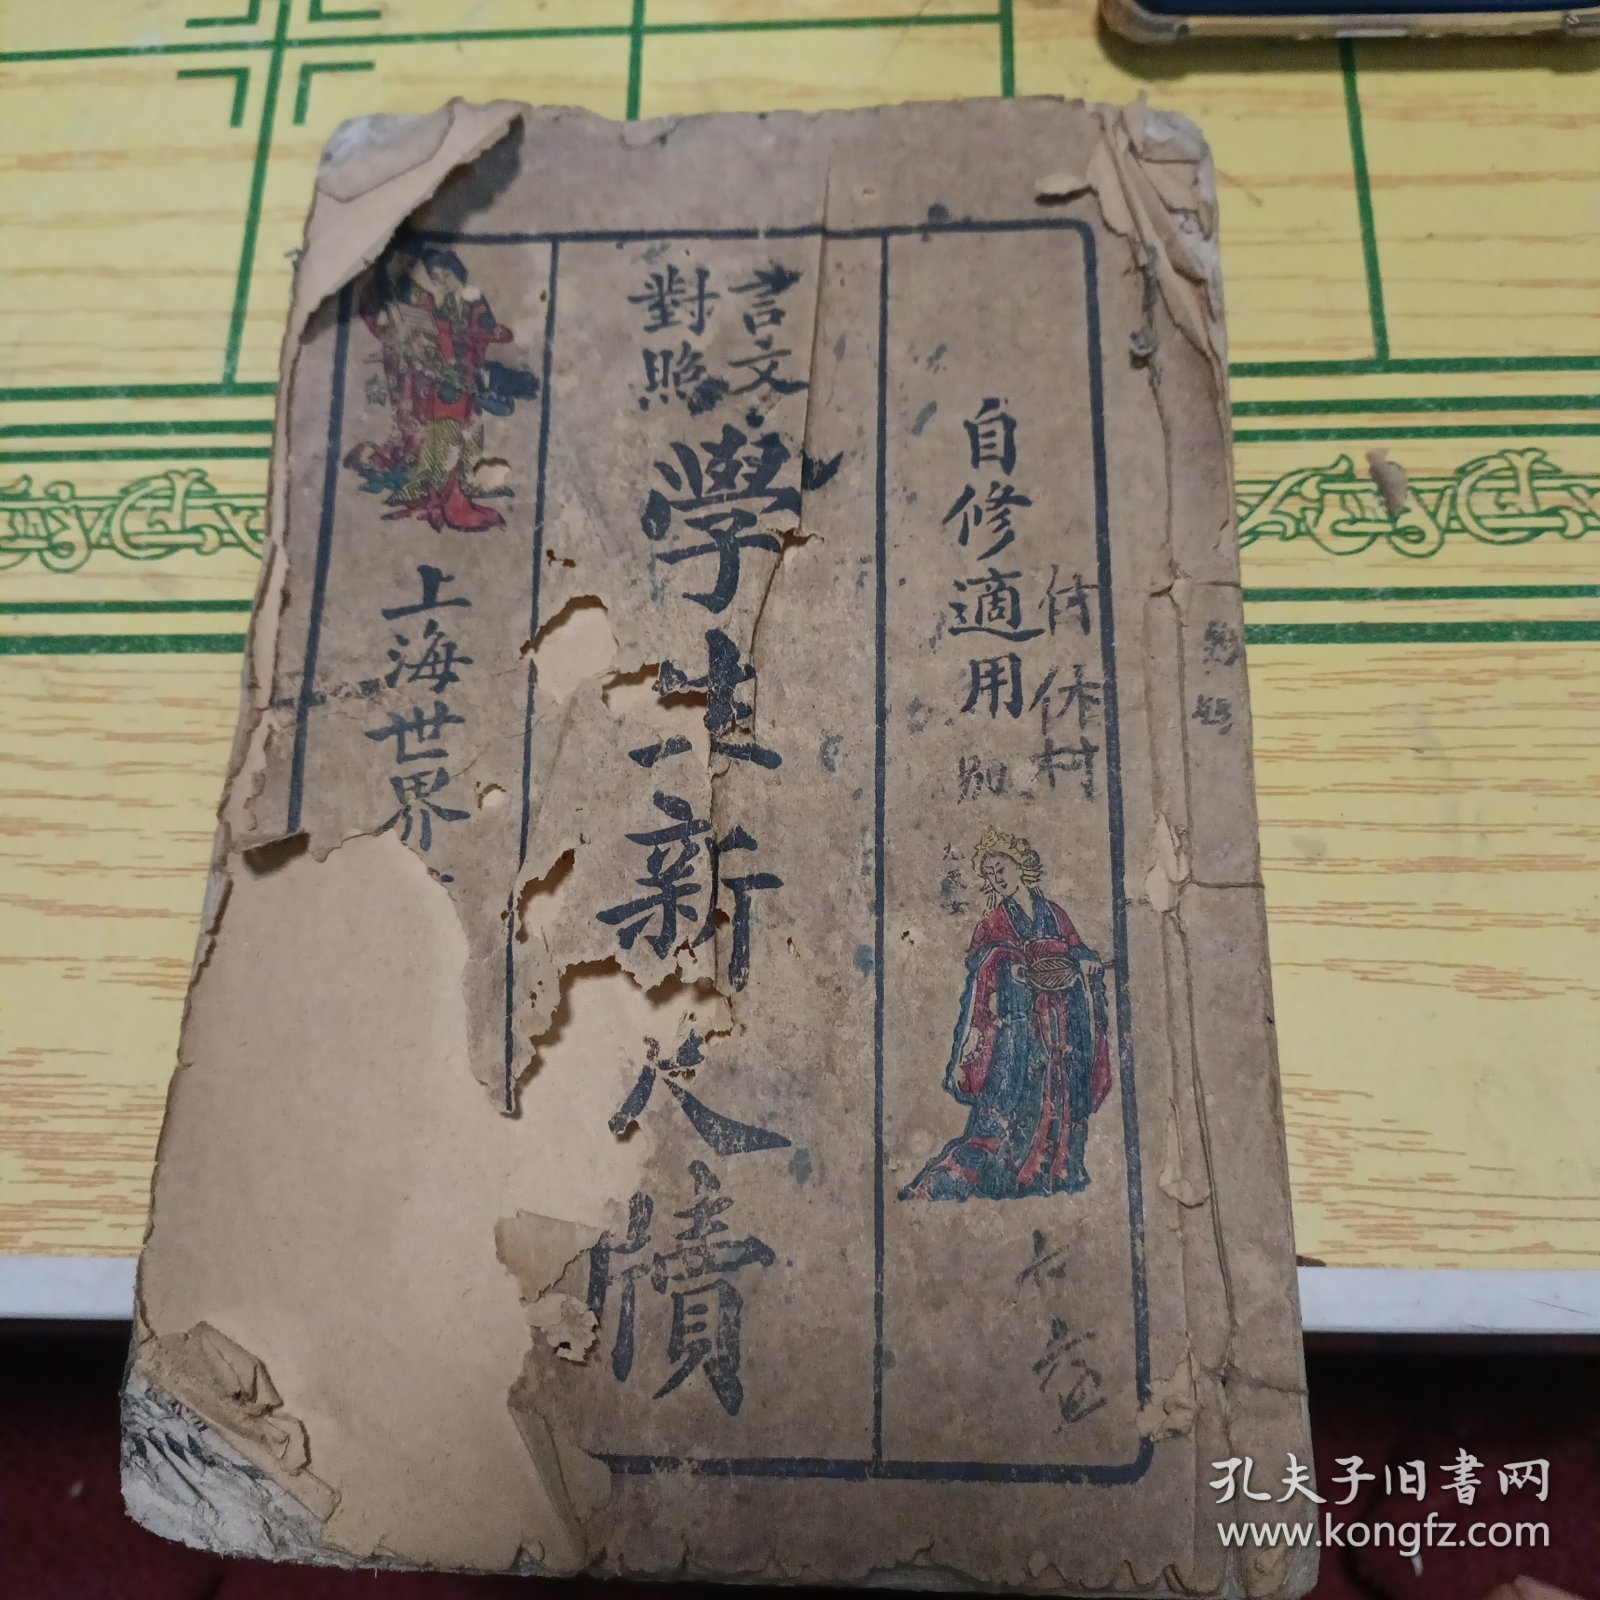 自修適用
言文
對照
學生新尺牘
上海世界
休村
孔夫子旧書网
www.kongfz.com